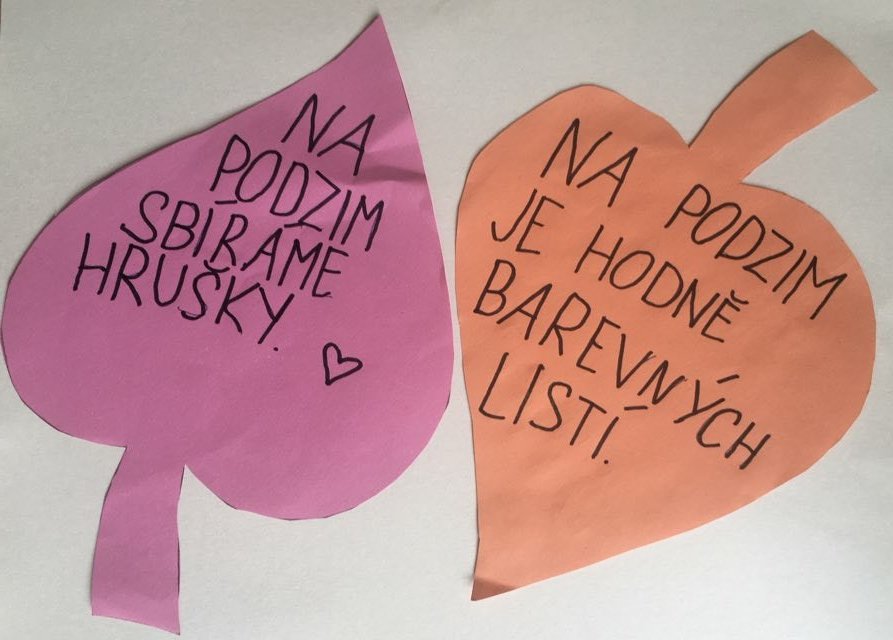 NA
PODZIM
SBÍRAME
HRUŠKY.
NA PODZIM
JE HODNĚ
BAREVNÝCH
LISTÍ.